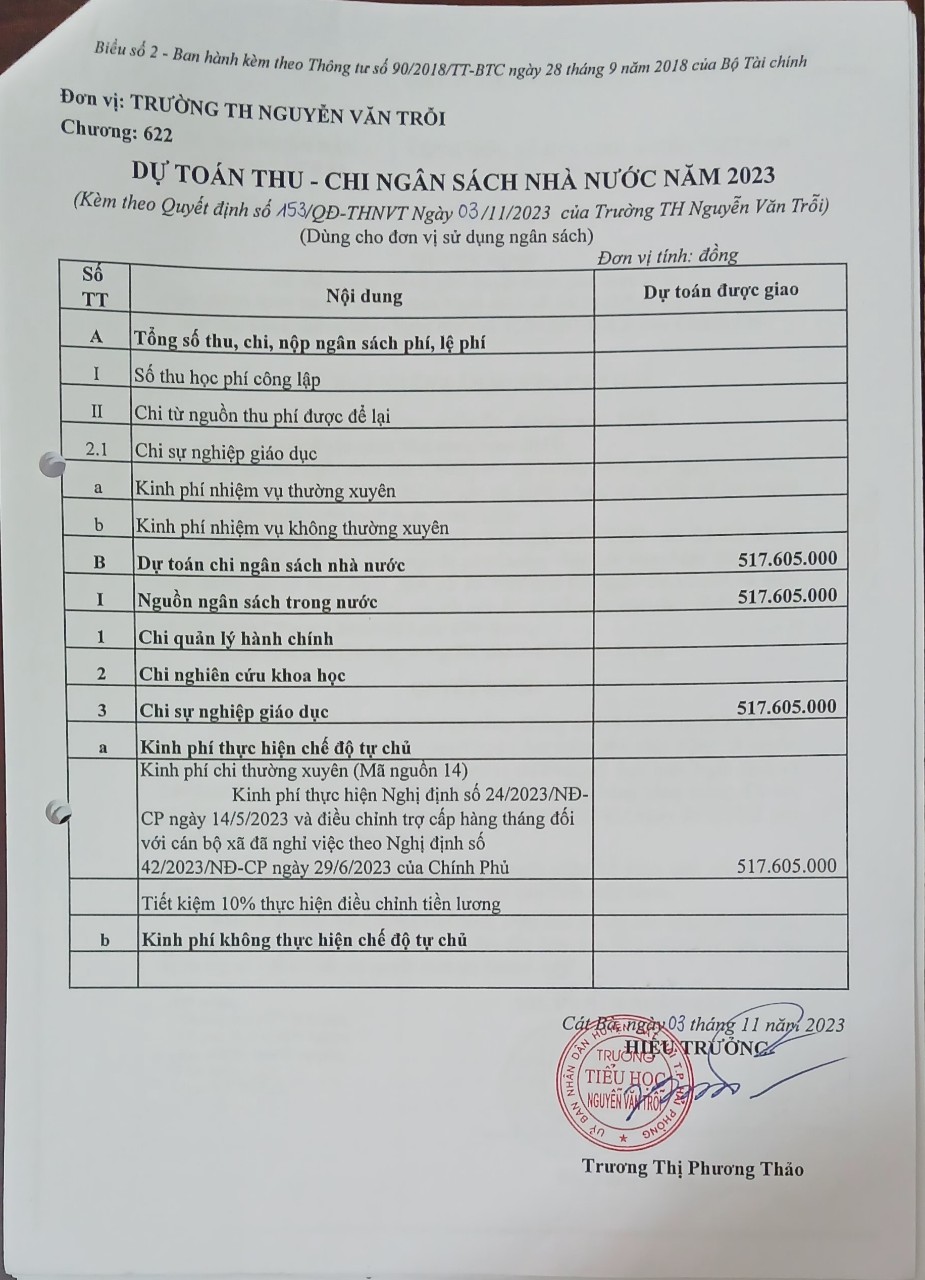 Biểu số 2 - Ban hành kèm theo Thông tư số 90/2018/TT-BTC ngày 28 tháng 9 năm 2018 của Bộ Tài chính
Đơn vị: TRƯỜNG TH NGUYỄN VĂN TRỖI
Chương: 622
DỰ TOÁN THU - CHI NGÂN SÁCH NHÀ NƯỚC NĂM 2023
(Kèm theo Quyết định số 153/QĐ-THNVT Ngày 03/11/2023 của Trường TH Nguyễn Văn Trỗi)
(Dùng cho đơn vị sử dụng ngân sách)
Đơn vị tính: đồng
Số TT Nội dung Dự toán được giao
A Tổng số thu, chi, nộp ngân sách phí, lệ phí
I Số thu học phí công lập
II Chi từ nguồn thu phí được để lại
2.1 Chi sự nghiệp giáo dục
a Kinh phí nhiệm vụ thường xuyên
b Kinh phí nhiệm vụ không thường xuyên
B Dự toán chi ngân sách nhà nước 517.605.000
I Nguồn ngân sách trong nước 517.605.000
1 Chi quản lý hành chính
2 Chi nghiên cứu khoa học
3 Chi sự nghiệp giáo dục 517.605.000
a Kinh phí thực hiện chế độ tự chủ
Kinh phí chi thường xuyên (Mã nguồn 14)
Kinh phí thực hiện Nghị định số 24/2023/NĐ-
CP ngày 14/5/2023 và điều chỉnh trợ cấp hàng tháng đối
với cán bộ xã đã nghỉ việc theo Nghị định số
42/2023/NĐ-CP ngày 29/6/2023 của Chính Phủ 517.605.000
Tiết kiệm 10% thực hiện điều chỉnh tiền lương
b Kinh phí không thực hiện chế độ tự chủ
Cát Bà, ngày 03 tháng 11 năm 2023
HIỆU TRƯỞNG
ỦY BAN NHÂN DÂN HUYỆN T.P HẢI PHÒNG
TRƯỜNG
TIỂU HỌC
NGUYỄN VĂN TRỖI
Trương Thị Phương Thảo